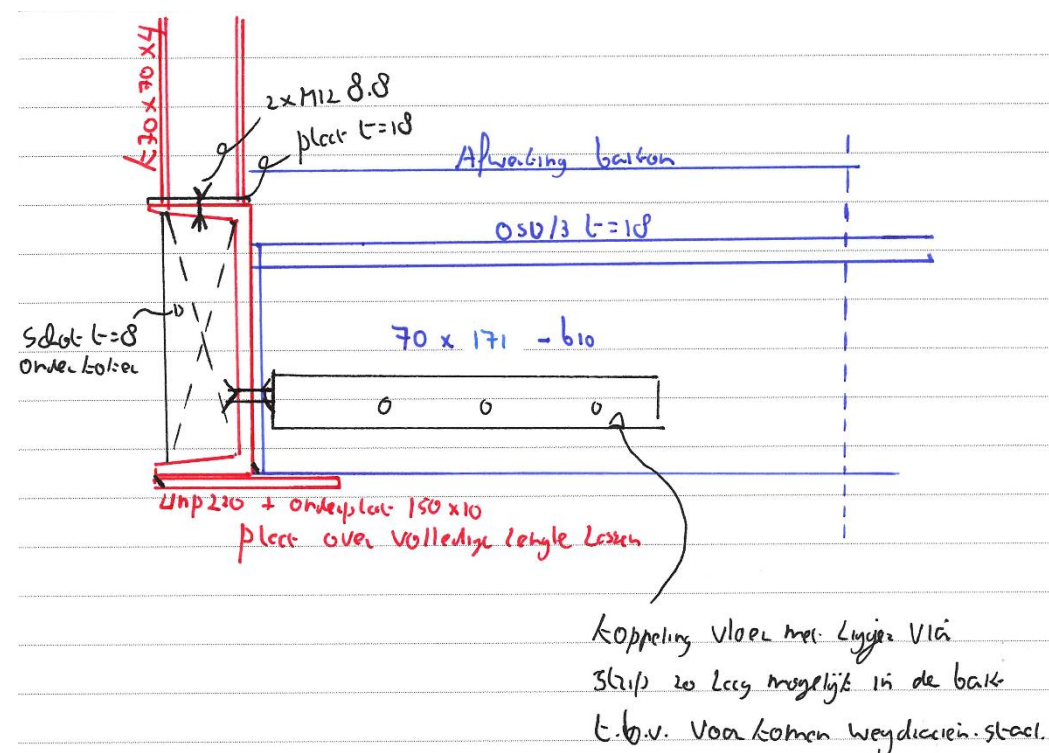 K70x70x4
2xM12 8.8
plaat t=18
Afwerking balkon
OSB/3 t=18
Schot t=8
onder koker
70 x 171 - 610
Unp220 + onderplaat 150x10
plaat over volledige lengte Lassen
koppeling vloer met Ligger via
strip zo Laag mogelijk in de balk
t.b.v. voorkomen wegdraaien staal.